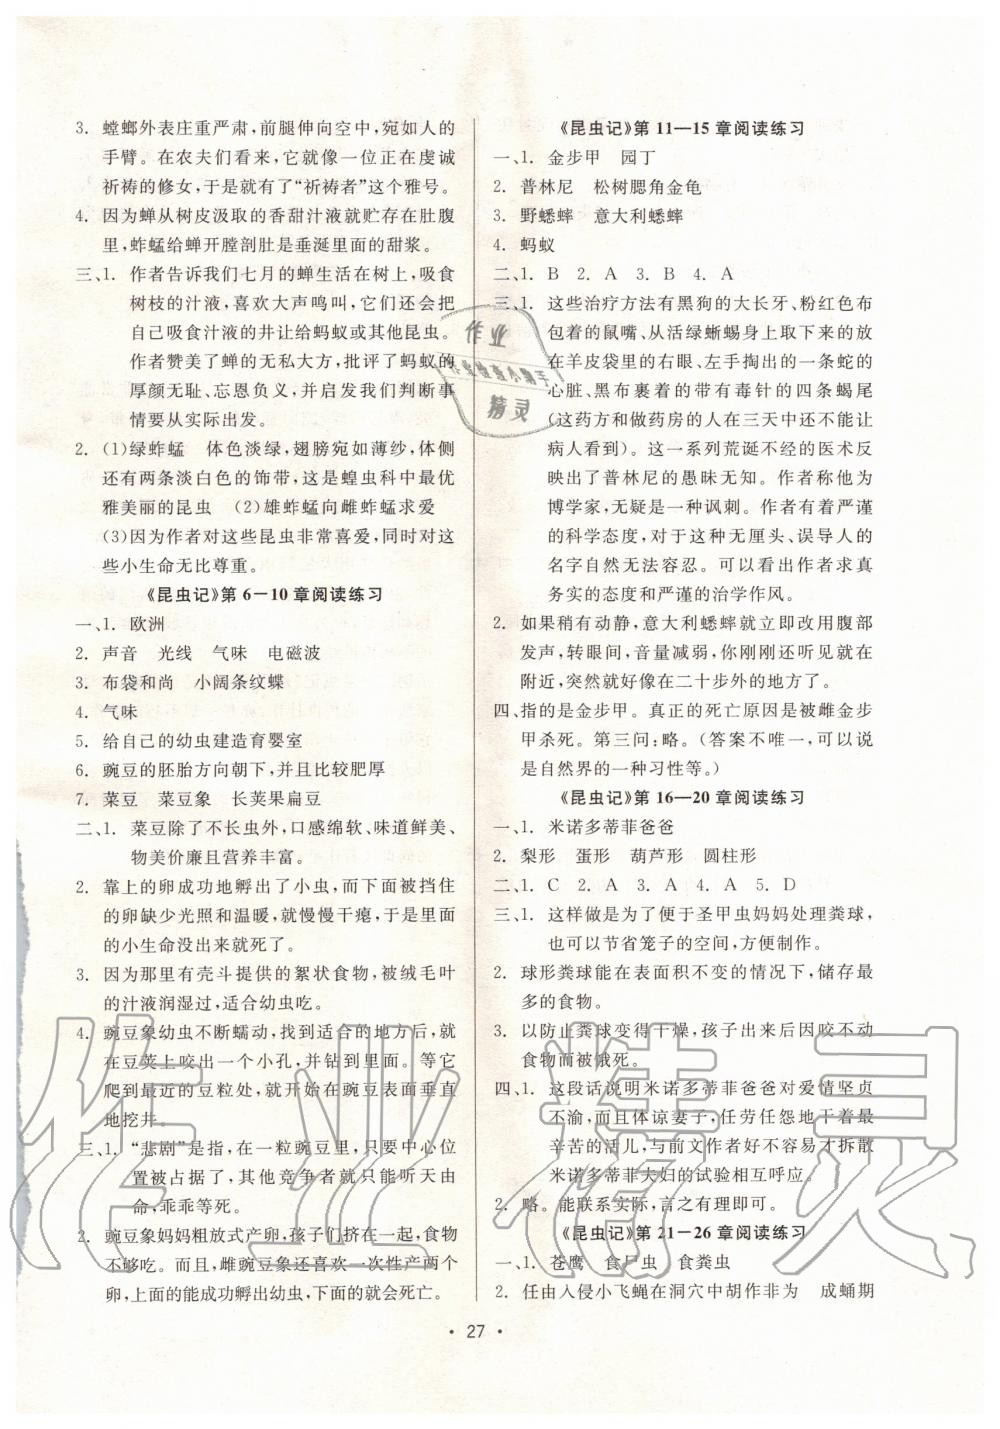 3. 螳螂外表庄重严肃,前腿伸向空中,宛如人的
手臂。在农夫们看来,就像一位正在虔诚
祈祷的修女,于是就有了“祈祷者”这个雅号。
4. 因为蝉从树皮汲取的香甜汁液就贮存在肚腹
里,蚱蜢给蝉开膛剖肚是垂涎里面的甜浆。
三、1. 作者告诉我们七月的蝉生活在树上,吸食
树枝的汁液,喜欢大声鸣叫,它们还会把
自己吸食汁液的井让给蚂蚁或其他昆虫。
作者赞美了蝉的无私大方,批评了蚂蚁的
厚颜无耻、忘恩负义,并启发我们判断事
情要从实际出发。
2. (1)绿蚱蜢 体色淡绿,翅膀宛如薄纱,体侧
还有两条淡白色的饰带,这是蝗虫科中最优
雅美丽的昆虫 (2)雄蚱蜢向雌蚱蜢求爱
(3)因为作者对这些昆虫非常喜爱,同时对
这些小生命无比尊重。
《昆虫记》第 6—10 章阅读练习
一、1. 欧洲
2. 声音 光线 气味 电磁波
3. 布袋和尚 小阔条纹蝶
4. 气味
5. 给自己的幼虫建造育婴室
6. 豌豆的胚胎方向朝下,并且比较肥厚
7. 菜豆 菜豆象 长荚果扁豆
二、1. 菜豆除了不长虫外,口感绵软、味道鲜美、
物美价廉且营养丰富。
2. 靠上的卵成功地孵出了小虫,而下面被挡住
的卵缺少光照和温暖,就慢慢干瘪,于是里面
的小生命没出来就死了。
3. 因为那里有壳斗提供的絮状食物,被绒毛叶
的汁液润湿过,适合幼虫吃。
4. 豌豆象幼虫不断蠕动,找到适合的地方后,就
在豆荚上咬出一个小孔,并钻到里面。等它
爬到最近的豆粒处,就开始在豌豆表面垂直
地挖井。
三、1. “悲剧”是指,在一粒豌豆里,只要中心位
置被占据了,其他竞争者就只能听天由
命,乖乖等死。
2. 豌豆象妈妈粗放式产卵,孩子们挤在一起,食物
不够吃。而且,雌豌豆象还喜欢一次性产两个
卵,上面的能成功孵出幼虫,下面的就会死亡。
《昆虫记》第 11—15 章阅读练习
一、1. 金步甲 园丁
2. 普林尼 松树腮角金龟
3. 野蟋蟀 意大利蟋蟀
4. 蚂蚁
二、1. B 2. A 3. B 4. A
三、1. 这些治疗方法有黑狗的大长牙、粉红色布
包着的鼠嘴、从活绿蜥蜴身上取下来的放
在羊皮袋里的右眼、左手掏出的一条蛇的
心脏、黑布裹着的带有毒针的四条蝎尾
(这药方和做药房的人在三天中还不能让
病人看到)。这一系列荒诞不经的医术反
映出了普林尼的愚昧无知。作者称他为
博学家,无疑是一种讽刺。作者有着严谨
的科学态度,对于这种无厘头、误导人的
名字自然无法容忍。可以看出作者求真
务实的态度和严谨的治学作风。
2. 如果稍有动静,意大利蟋蟀就立即改用腹部
发声,转眼间,音量减弱,你刚刚还听见它就在
附近,突然就好像在二十步外的地方了。
四、指的是金步甲。真正的死亡原因是被雌金步
甲杀死。第三问:略。(答案不唯一,可以说
是自然界的一种习性等。)
《昆虫记》第 16—20 章阅读练习
一、1. 米诺多蒂菲爸爸
2. 梨形 蛋形 葫芦形 圆柱形
二、1. C 2. A 3. A 4. A 5. D
三、1. 这样做是为了便于圣甲虫妈妈处理粪球,
也可以节省笼子的空间,方便制作。
2. 球形粪球能在表面积不变的情况下,储存最
多的食物。
3. 以防止粪球变得干燥,孩子出来后因咬不动
食物而被饿死。
四、1. 这段话说明米诺多蒂菲爸爸对爱情坚贞
不渝,而且体谅妻子,任劳任怨地干着最
辛苦的活儿,与前文作者好不容易才拆散
米诺多蒂菲夫妇的试验相互呼应。
2. 略。能联系实际,言之有理即可。
《昆虫记》第 21—26 章阅读练习
一、1. 苍鹰 食尸虫 食粪虫
2. 任由人侵小飞蝇在洞穴中胡作非为 成蛹期
• 27 •
作业
作业检查小助手
精灵
作业精灵